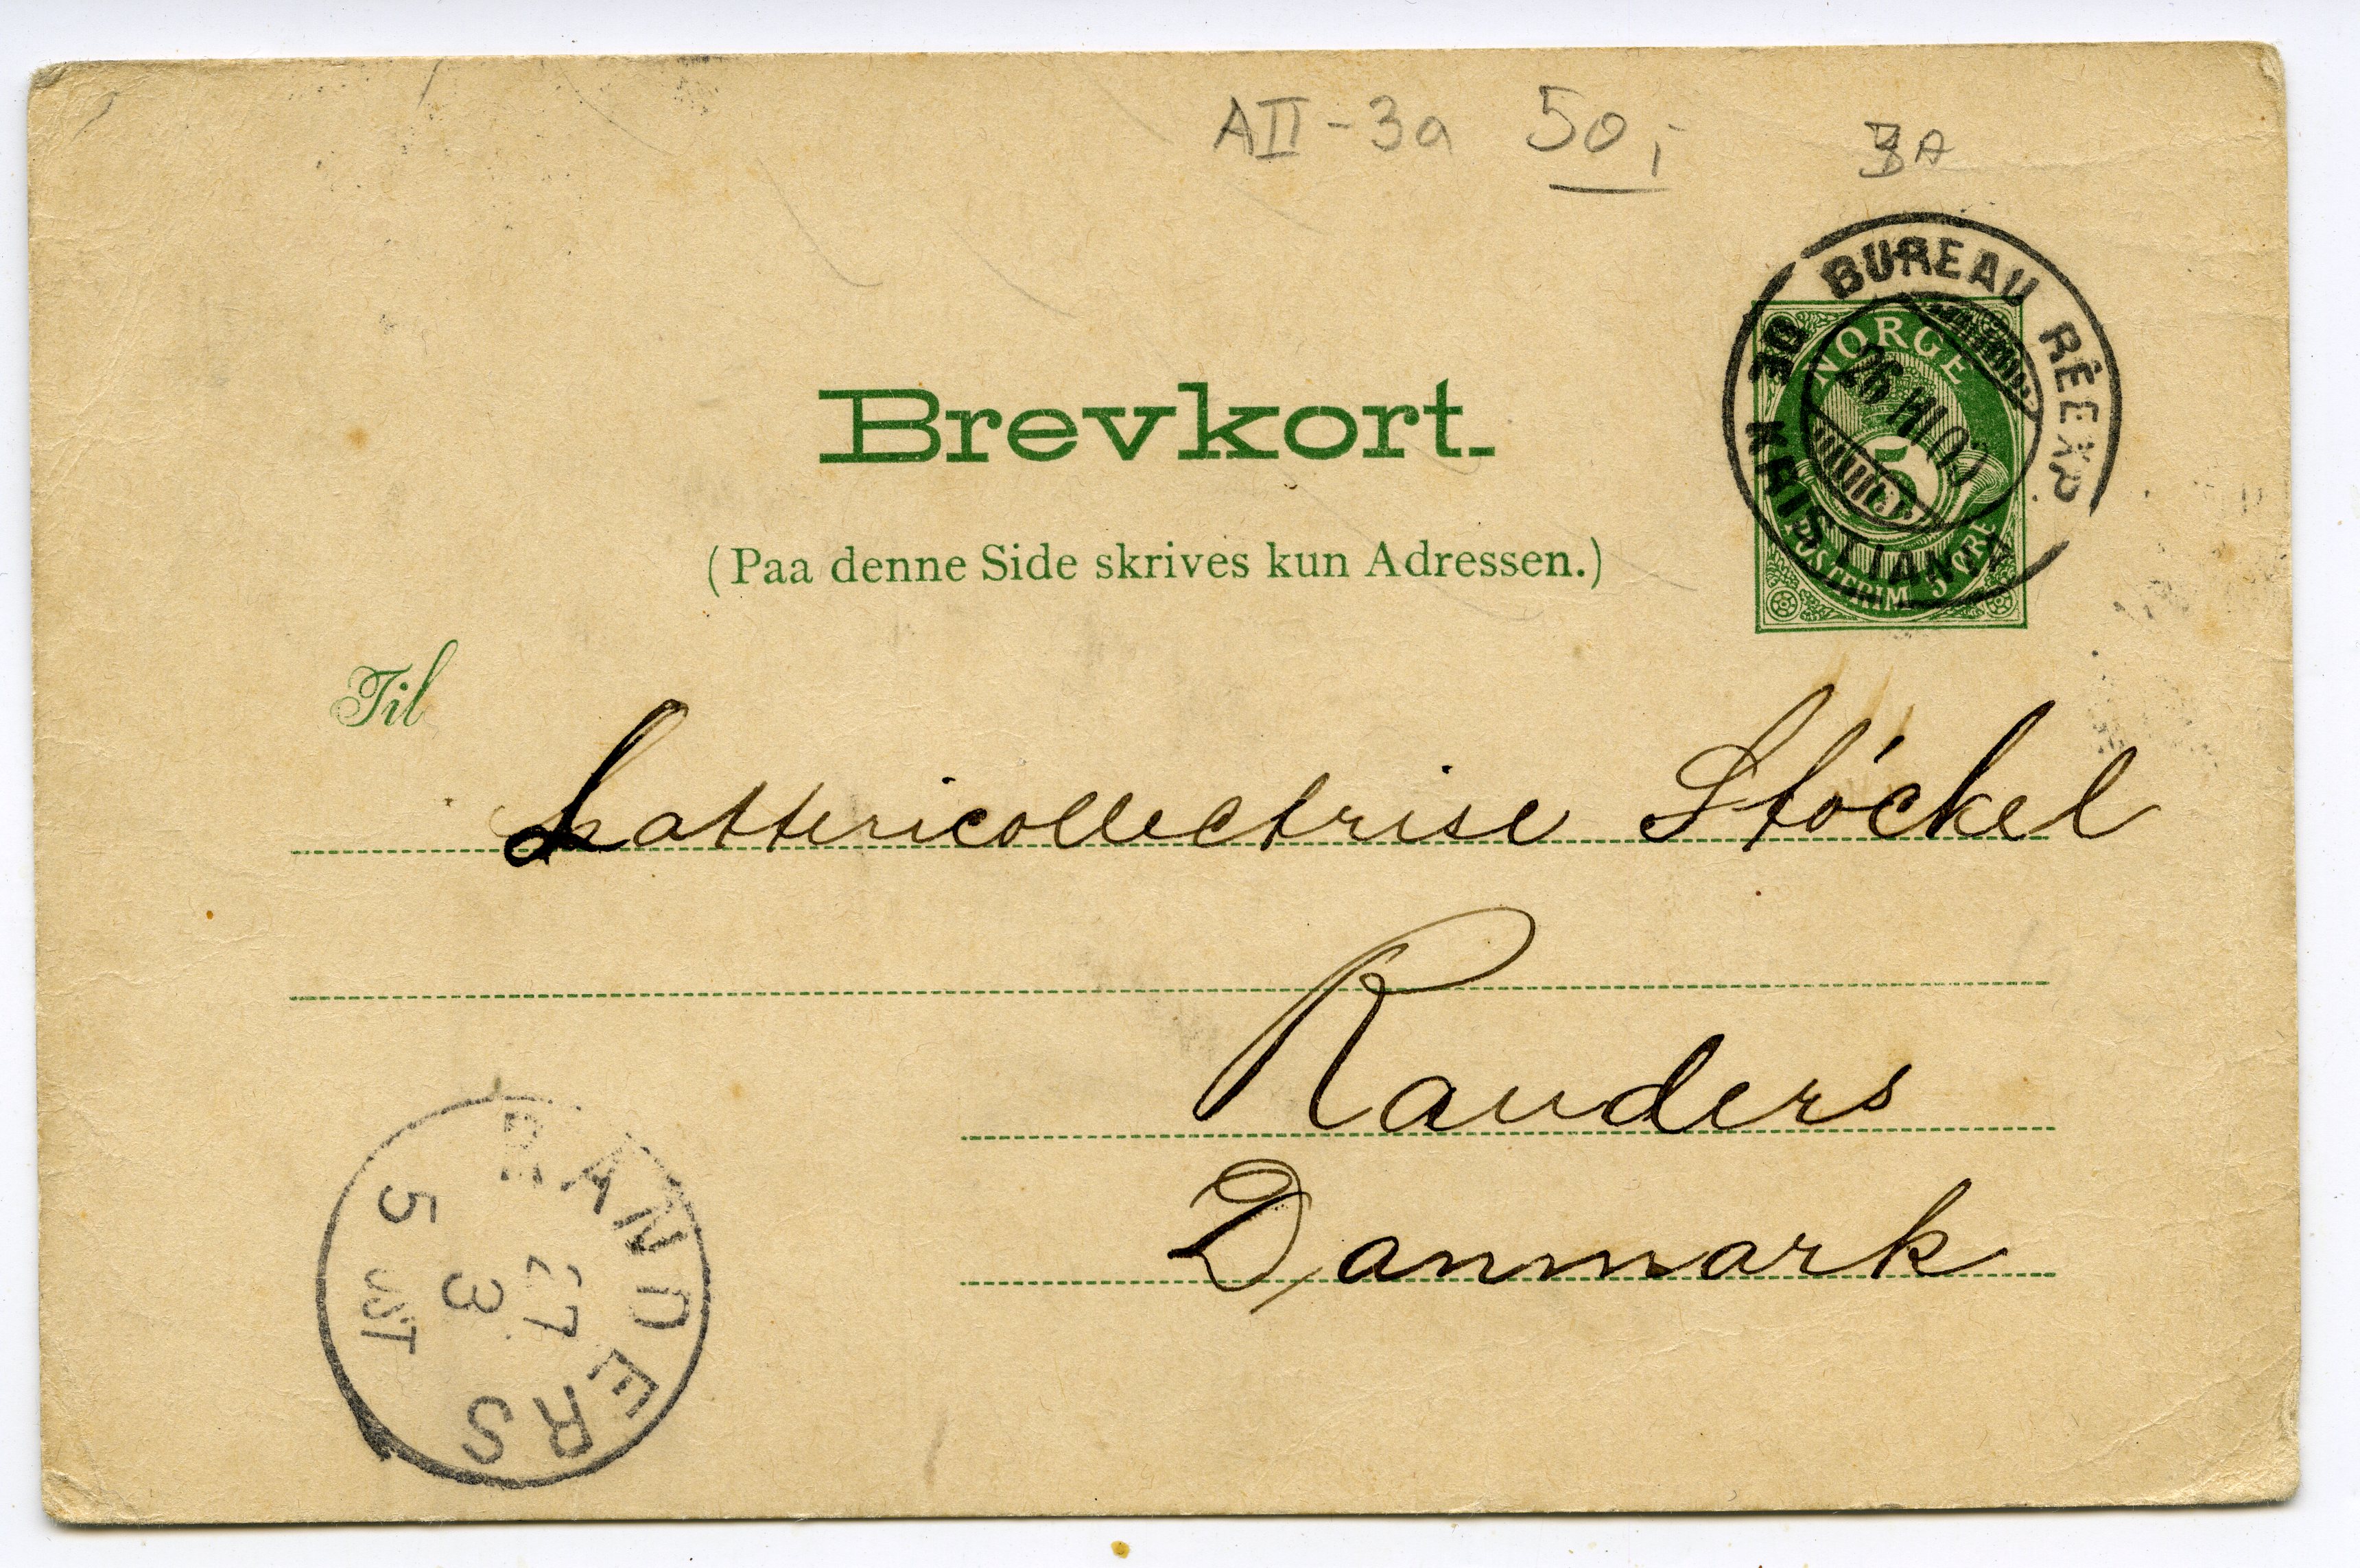 AII-3a 50,- 3A
BUREAU RÉEXP
DE KRISTIANIA
26 III
NORGE
5
POSTFRIM. 5 ØRE
Brevkort.
(Paa denne Side skrives kun Adressen.)
Til
Lattericollectrise Stóckel
Randers
Danmark
RANDERS
27
3
5